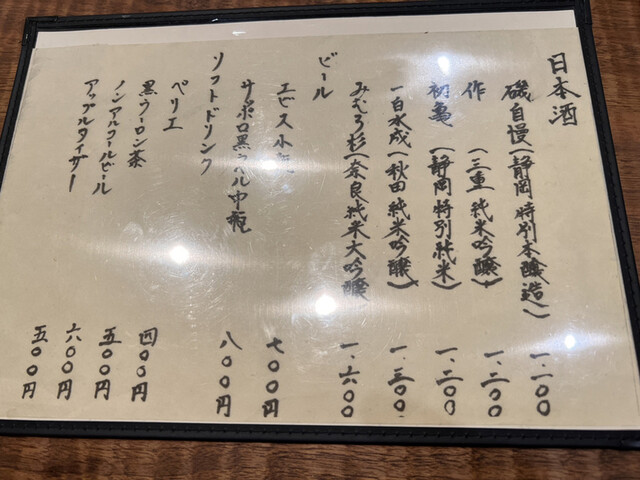 日本酒
磯自慢(静岡 特別本醸造) 一、二〇〇
作 (三重 純米吟醸) 一、三〇〇
初亀 (静岡 特別純米) 一、二〇〇
一白水成(秋田 純米吟醸) 一、三〇〇
みむろ杉(奈良 純米大吟醸 一、六〇〇
ビール
エビス小 七〇〇円
サッポロ黒ラベル中瓶 八〇〇円
ソフトドリンク
ペリエ 四〇〇円
黒ウーロン茶 五〇〇円
ノンアルコールビール 六〇〇円
アップルタイザー 五〇〇円